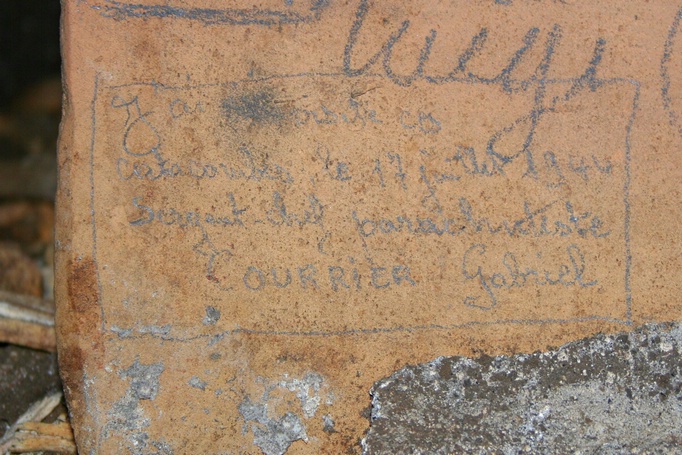 Luigi
J'ai visité ces
catacombes le 17 juillet 1944
Sergent-chef parachutiste
COURRIER Gabriel